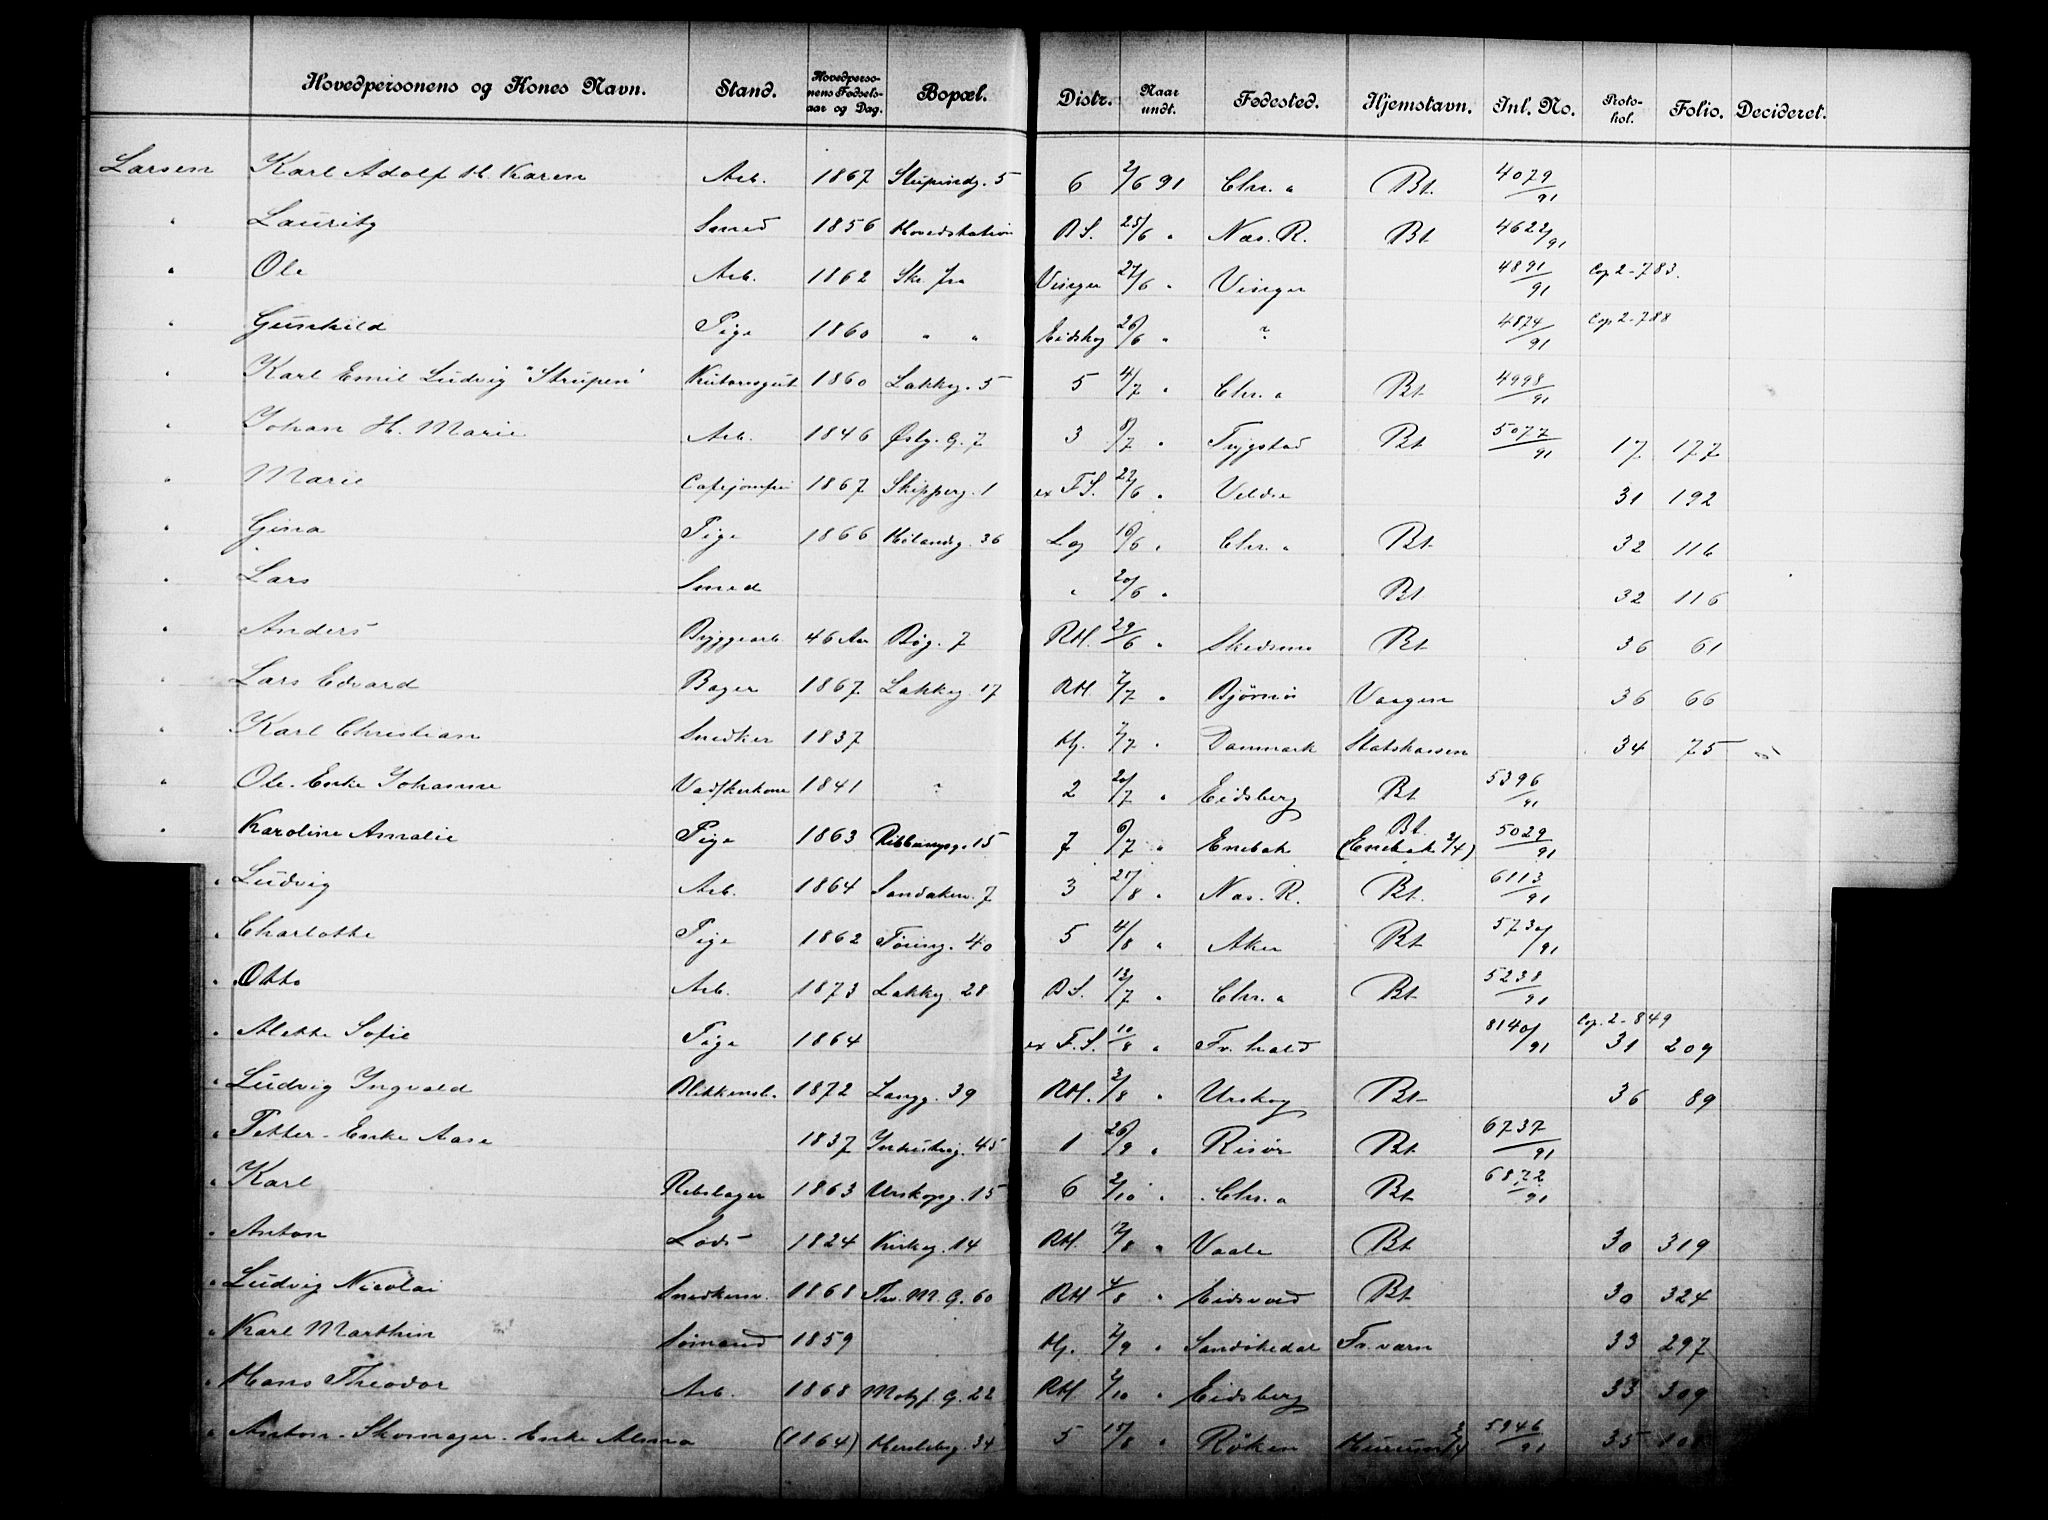 Hovedpersonens og Kones Navn. Stand. Hovedpersonens Fødselsaar og Dag. Bopæl. Distr. Naar undt. Fødested. Hjemstavn. Inl. No. Protokol. Folio. Decideret.
Larsen Karl Adolf H. Karen Arb. 1867 5 6 2/6 91 Chr.a Bt. 4079/91
" Lauritz Smed 1856 Hovedstation B S. 25/6 " Næs. R. Bt 4622/91
" Ole Arb. 1862 Ske. fra Vinger 27/6 " Vinger 4891/91 Cop 2-783.
" Gunhild Pige 1860 " " Eidskog 26/6 " ? 4874/91 Cop 2-788
" Karl Emil Ludvig "Strupen" 1860 Lakkeg. 5 5 4/7 " Chr.a Bt 4998/91
" Johan H. Marie Arb. 1846 Østg. G. 7 3 8/7 " Trygstad Bt 5077/91 17 177
" Marie Cafejomfru 1867 Skipperg. 1 ex F.S. 22/6 " Veldre 31 192
" Gina Pige 1866 Hølandsg. 36 Lg 10/6 " Chr.a Bt 32 116
" Lars Smed " 20/6 " Bt 32 116
" Anders Byggearb. 46 Aar Bøg. 7 RH. 29/6 " Skedsmo Bt 36 61
" Lars Edvard Bager 1867 Lakkeg. 17 RH. 7/7 " Bjørnør Vaagen 36 66
" Karl Christian Snedker 1837 Hj. 7/7 " Danmark Statskassen 34 75
" Ole. Enke Johanne Vadskerkone 1841 " 2 20/7 " Eidsberg Bt 5396/91
" Karoline Amalie Pige 1863 Ribbungsg. 15 7 6/7 " Enebak Bt. (Enebak 2/4) 5029/91
" Ludvig Arb. 1864 Sandakerv. 7 3 21/8 " Næs. R. Bt. 6113/91
" Charlotte Pige 1862 Tøieng. 40 5 4/8 " Aker Bt 5730/91
" Otto Arb. 1873 Lakkeg. 28 B S. 12/7 " Chr.a Bt 5238/91
" Alette Sofie Pige 1864 ex F.S. 10/8 " Fr. hald 8140/91 Cop. 2-849 31 209
" Ludvig Ingvald Blikkensl. 1872 Langg. 39 RH. 3/8 " Urskog Bt 36 89
" Petter. Enke Aase 1837 Industrig. 45 1 26/9 " Risør Bt 6737/91
" Karl Rebslager 1863 Urskogsg. 15 6 2/10 " Chr.a Bt 6872/91
" Anton Lods 1824 Kirkeg. 14 RH. 12/8 " Vaale Bt 30 319
" Ludvig Nicolai Snedkersv. 1868 Thv. M. G. 60 RH 4/8 " Eidsvold Bt 30 324
" Karl Marthin Sømand 1859 Hj. 7/9 " Sandøkedal Fr. værn 33 297
" Hans Theodor Arb. 1868 Motzf. G. 22 RH 2/10 " Eidsberg 33 309
" Anton. Skomager. Enke Alma (1864) Herslebg. 34 5 15/8 " Røken Hurum 2/4 5946/91 35 108